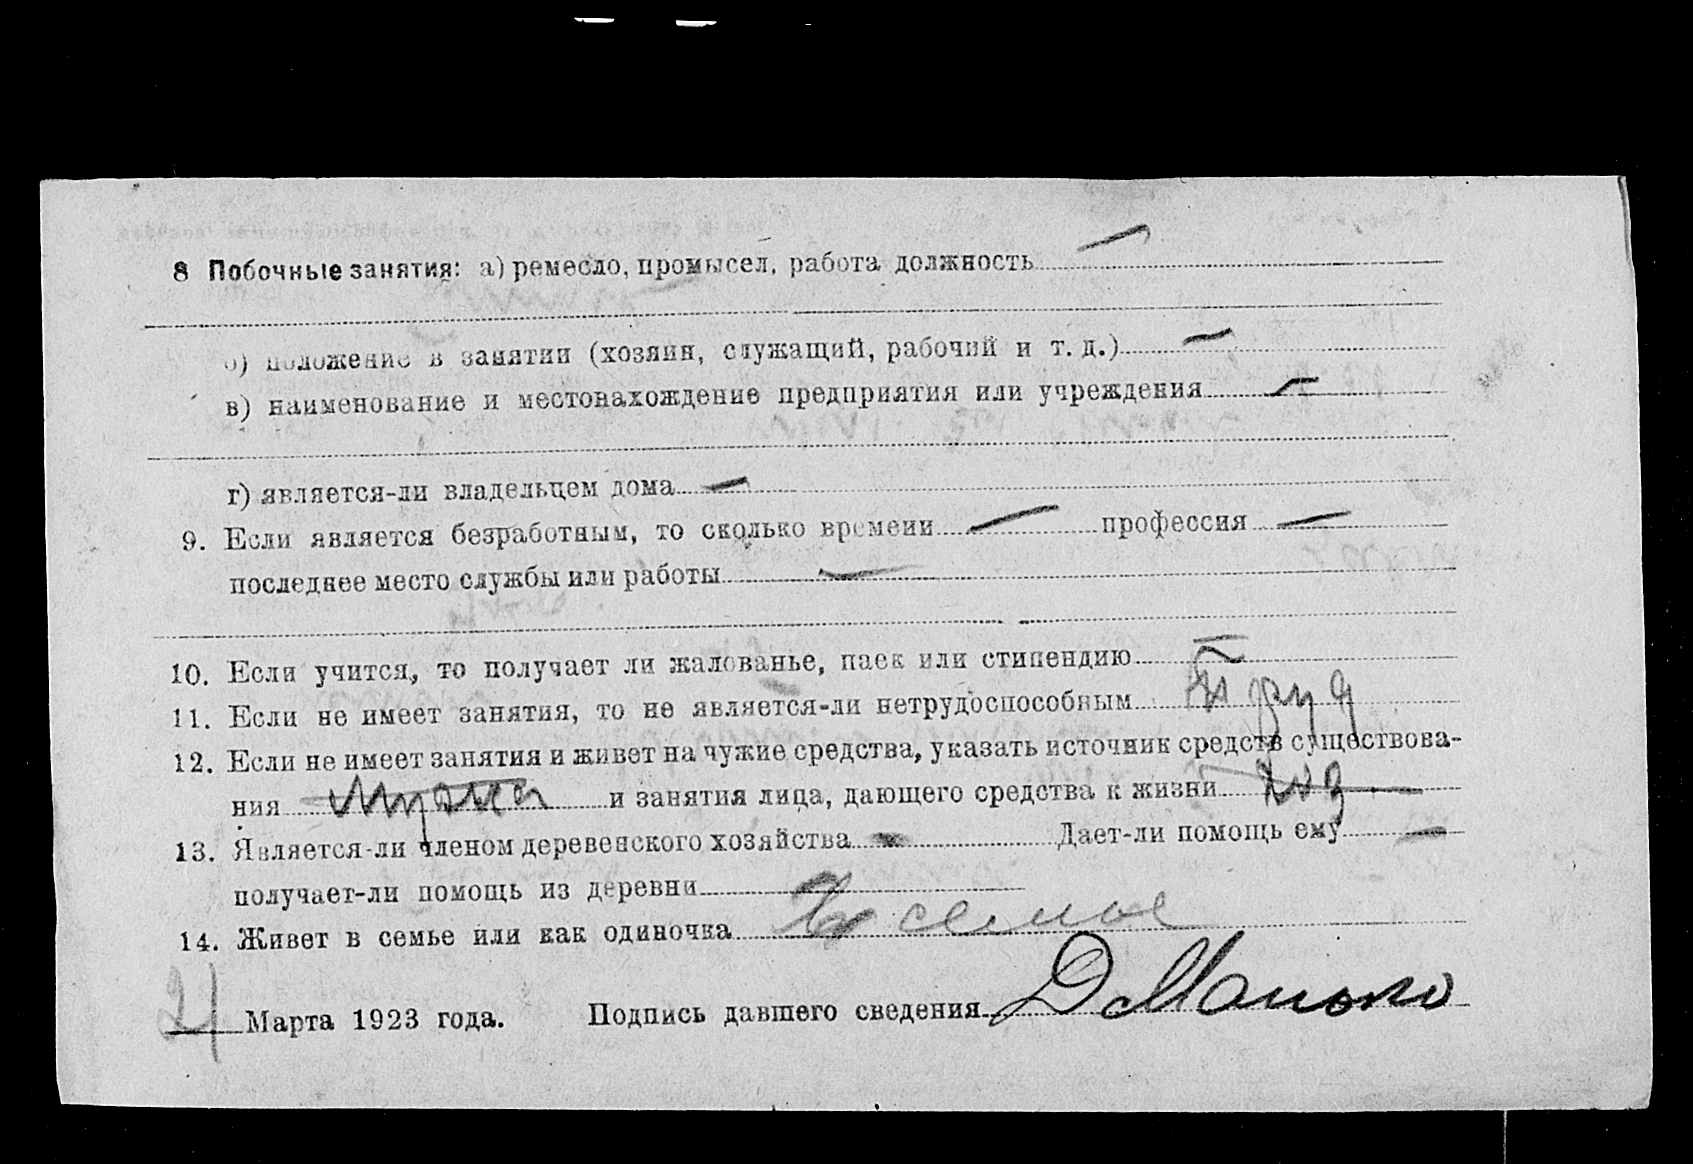 8 Побочные занятия: а) ремесло, промысел, работа должность —
б) положение в занятии (хозяин, служащий, рабочий и т. д.) —
в) наименование и местонахождение предприятия или учреждения —
г) является-ли владельцем дома —
9. Если является безработным, то сколько времени — профессия —
последнее место службы или работы —
10. Если учится, то получает ли жалованье, паек или стипендию —
11. Если не имеет занятия, то не является-ли нетрудоспособным
12. Если не имеет занятия и живет на чужие средства, указать источник средств существова-
ния мужа и занятия лица, дающего средства к жизни
13. Является-ли членом деревенского хозяйства — Дает-ли помощь ему —
получает-ли помощь из деревни
14. Живет в семье или как одиночка в семье
21 Марта 1923 года. Подпись давшего сведения